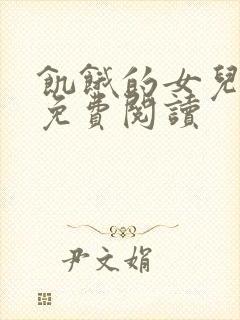 飢餓的女兒
免費閱讀
尹文娟